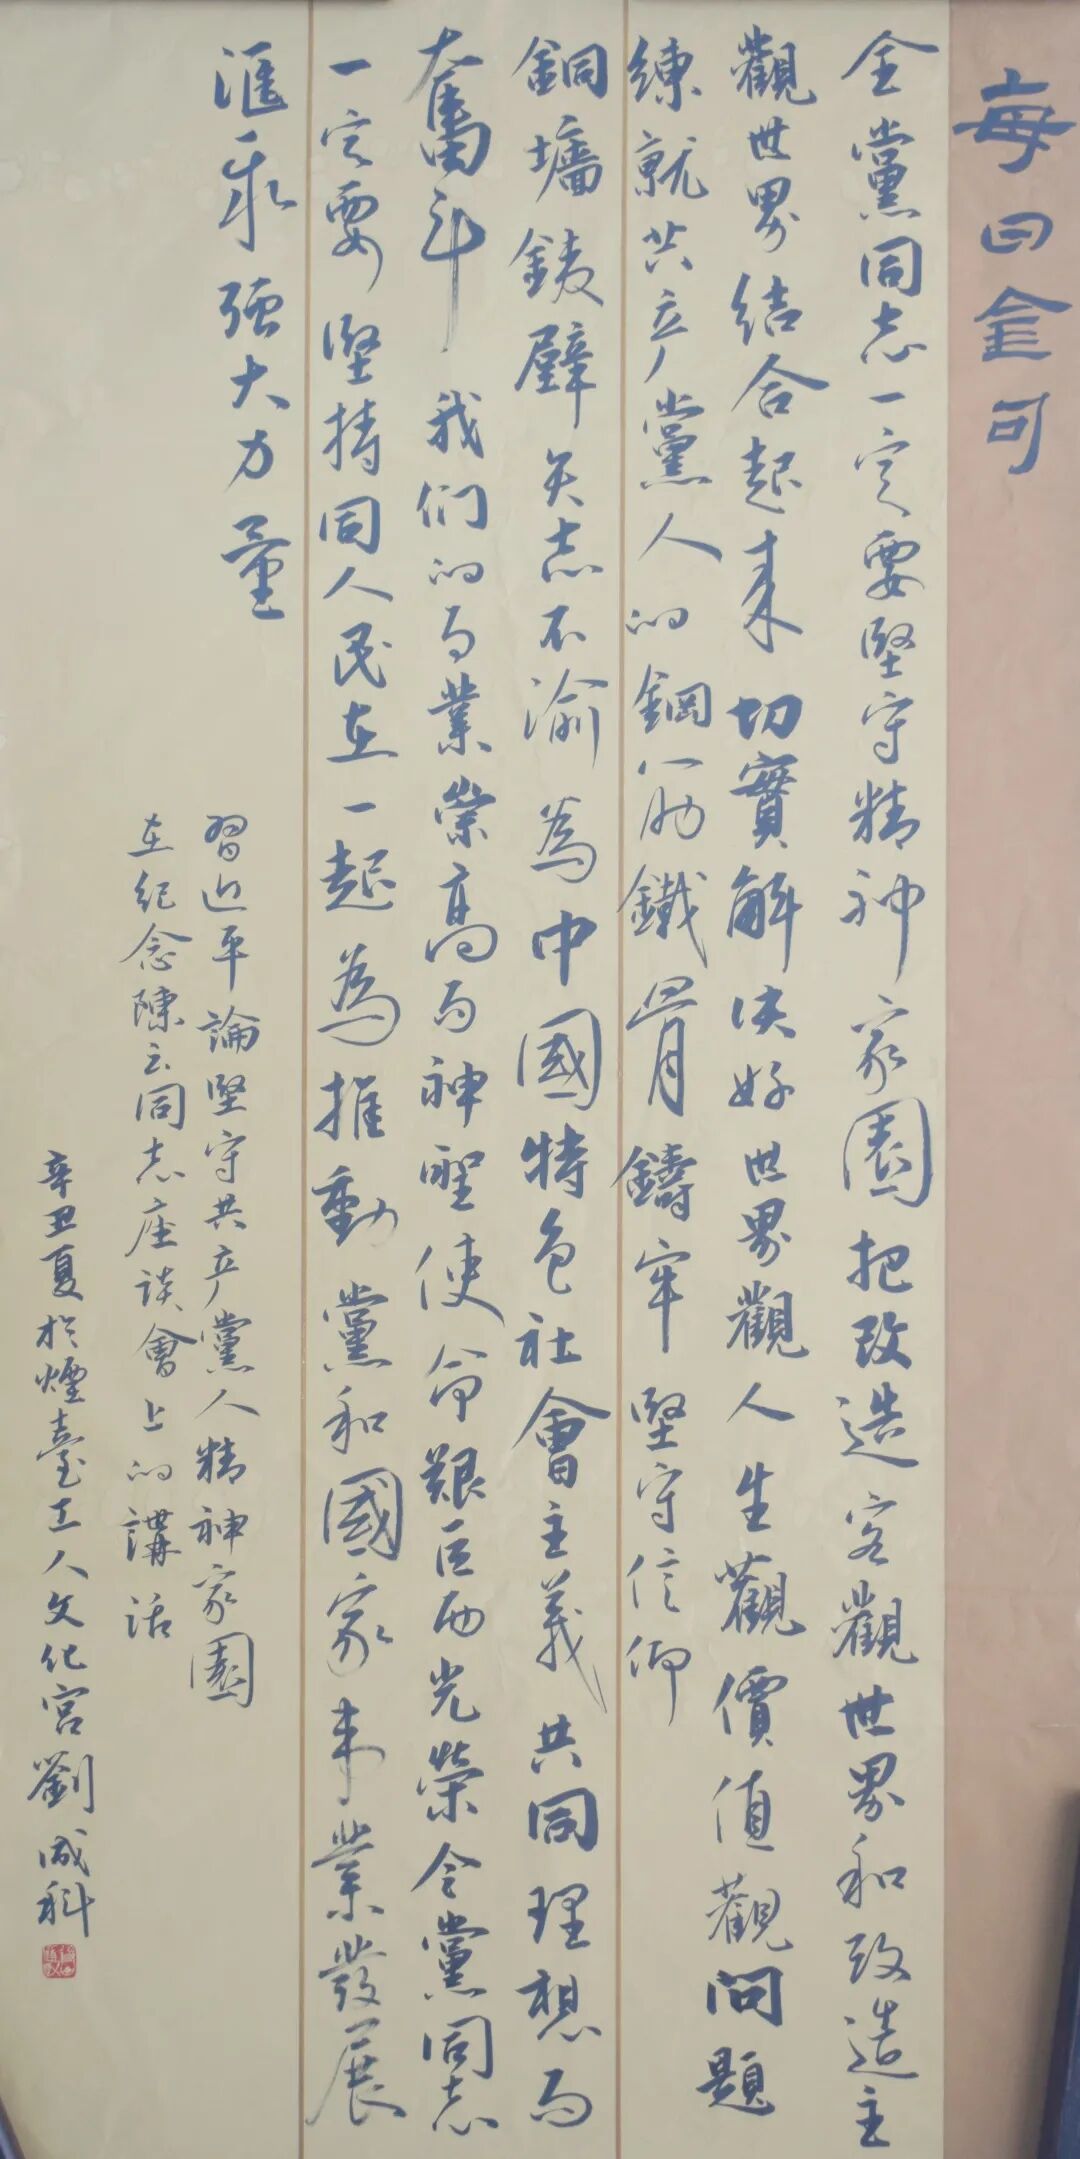 每日金句
全黨同志一定要堅守精神家園把改造客觀世界和改造主
觀世界結合起来切實解决好世界觀人生觀價值觀問題
練就共产黨人的鋼筋鐵骨鑄牢堅守信仰
銅墻鐵壁矢志不渝為中國特色社會主義共同理想而
奮斗我们的事業崇高而神聖使命艱巨而光榮全黨同志
一定要堅持同人民在一起為推動黨和國家事業發展
滙聚强大力量
習近平論堅守共产黨人精神家園
在紀念陳云同志座談會上的講话
辛丑夏於煙臺工人文化宮劉成科